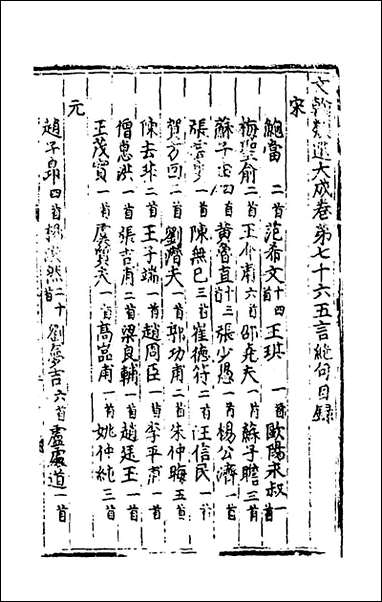 文翰類選大成卷第七十六五言絶句目録
宋
鮑當二首 范希文十四首 王琪一首 歐陽永叔一首
梅聖俞二首 王介甫六首 邵堯夫一首 蘇子瞻三首
蘇子由四首 黄魯直廿三首 張少愚一首 楊公濟一首
張 一首 陳無已三首 崔德符二首 汪信民一首
賀方回二首 劉潛夫一首 郭功甫二首 朱仲晦五首
陳去非二首 王子端一首 趙周臣一首 李平甫一首
僧惠洪一首 張吉甫二首 梁良輔一首 趙廷玉一首
王茂實一首 虞質夫一首 高 甫一首 姚仲純三首
元
趙子昂四首 楊 然二十首 劉夢吉六首 盧處道一首